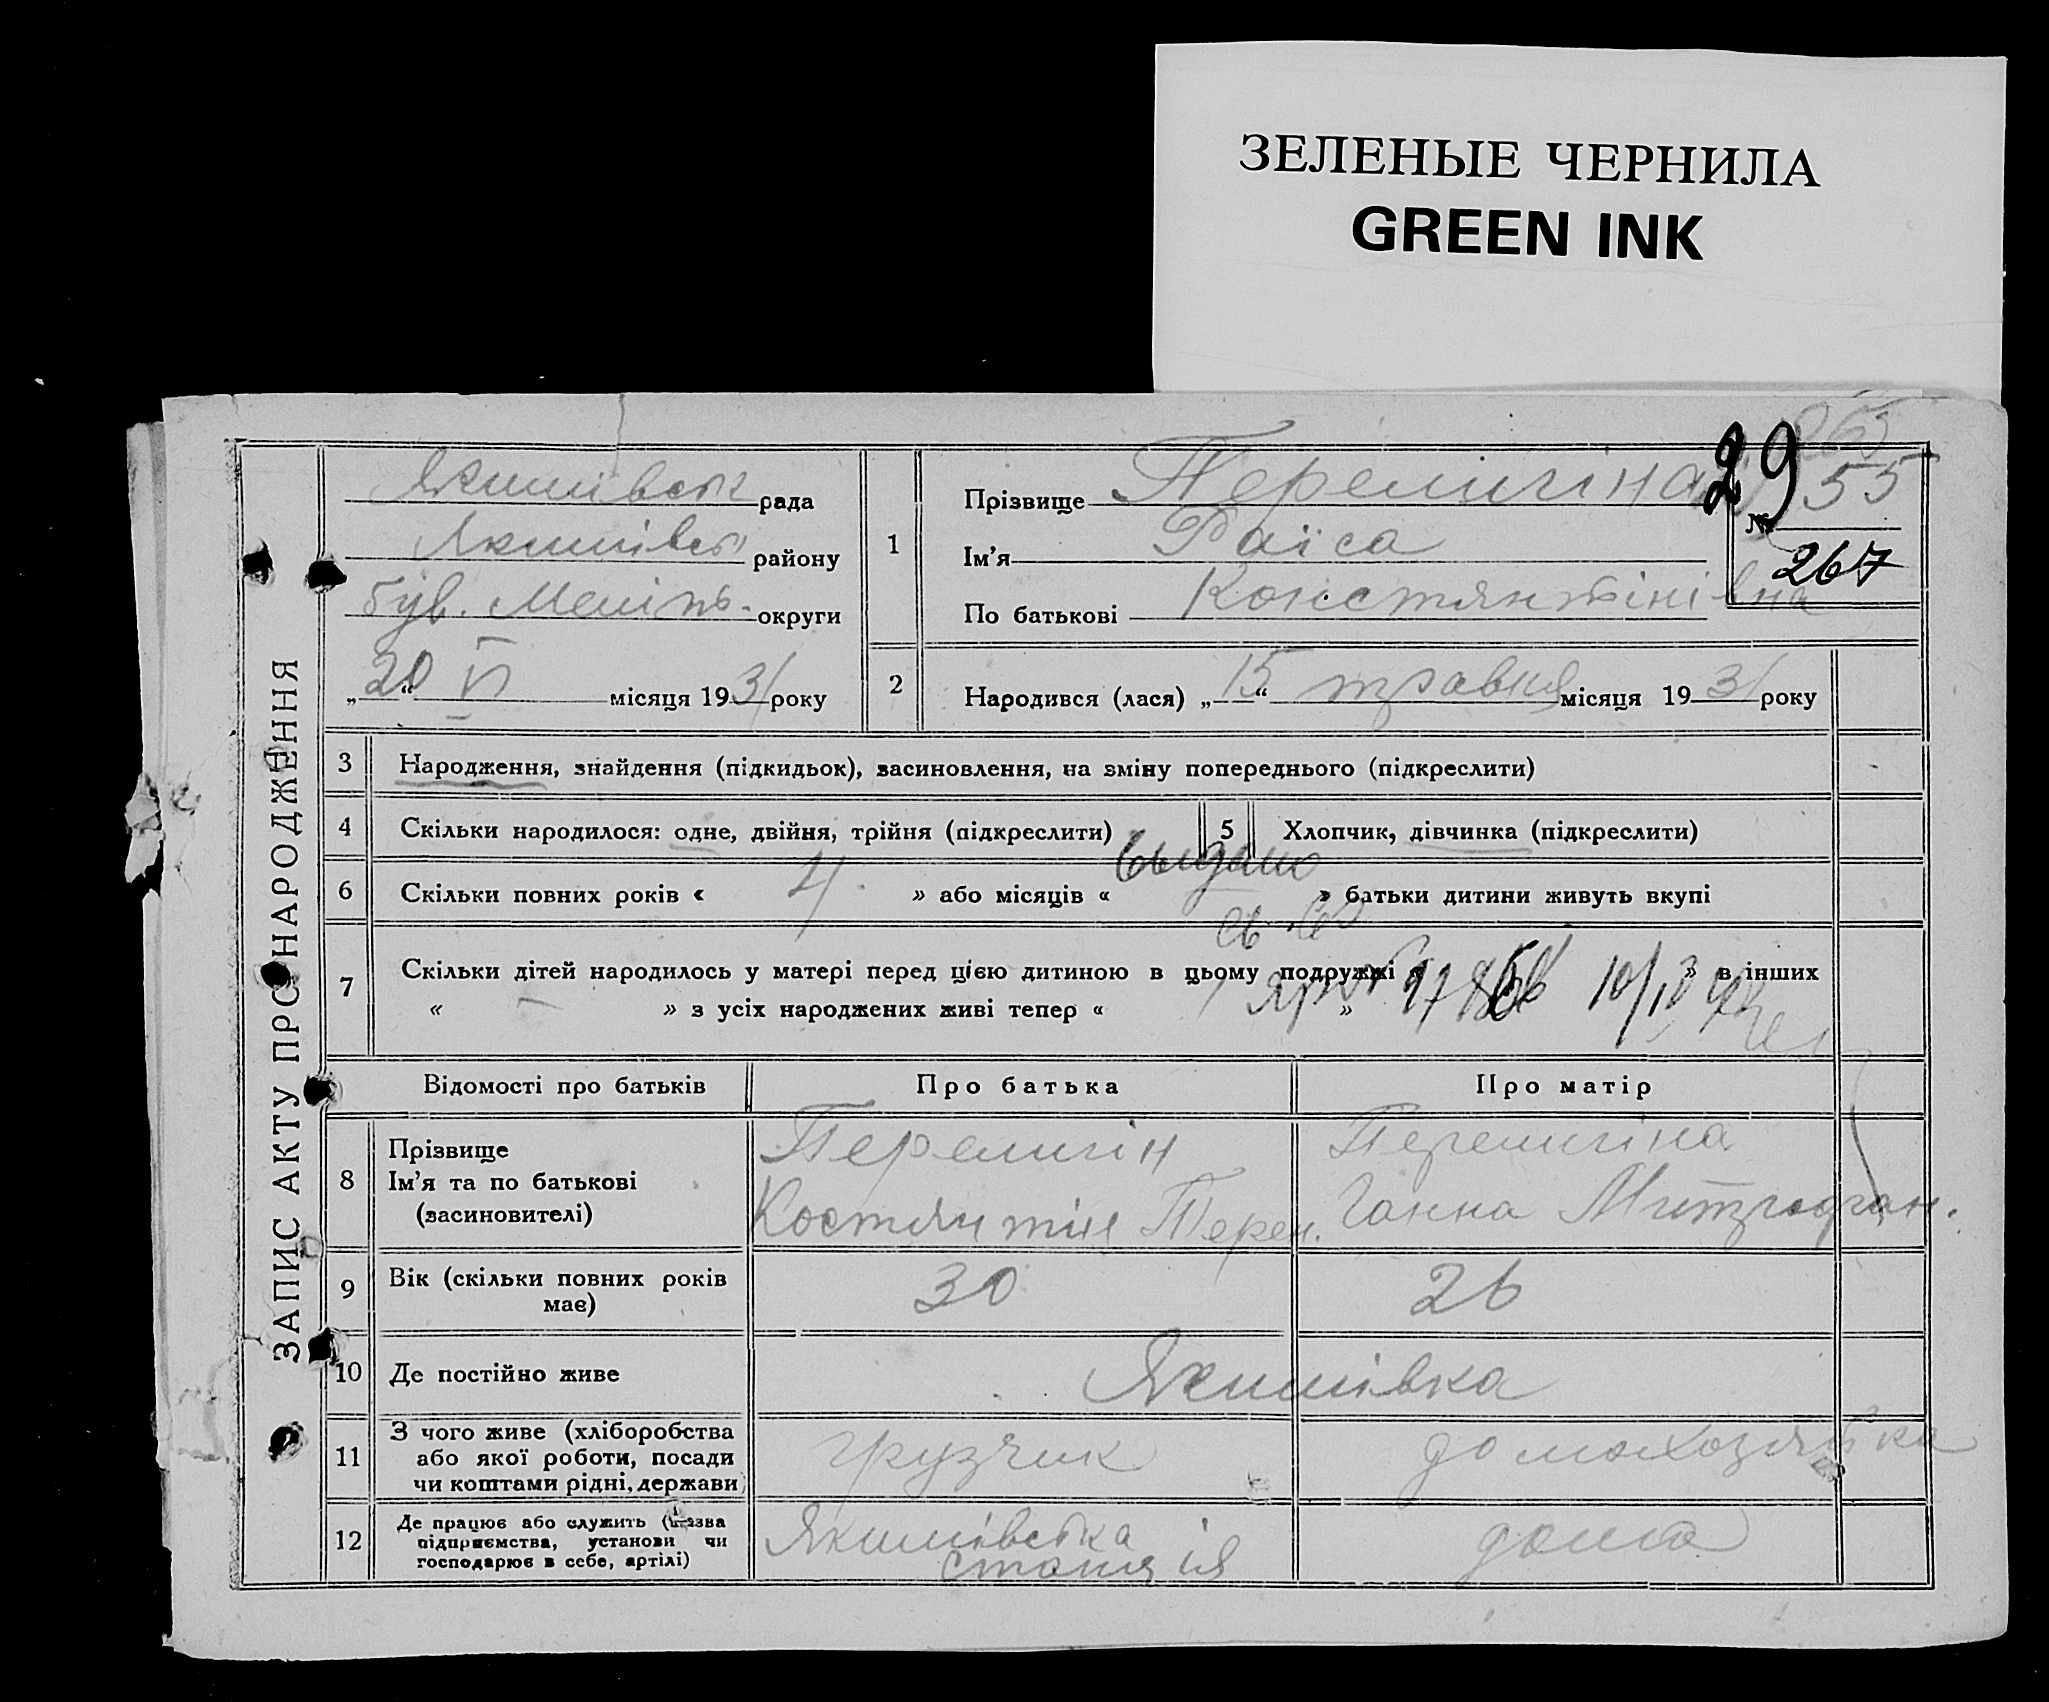 ЗЕЛЕНЫЕ ЧЕРНИЛА
GREEN INK
ЗАПИС АКТУ ПРО НАРОДЖЕННЯ
Якимівськ рада
Якимівськ району
був. Меліт. округи
„20“ VI місяця 1931 року
1
Прізвище Перелигіна
Ім’я Раїса
По батькові Константінівна
29
265
№ 55
267
2 Народився (лася) „15“ травня місяця 1931 року
3 Народження, знайдення (підкидьок), засиновлення, на зміну попереднього (підкреслити)
4 Скільки народилося: одне, двійня, трійня (підкреслити) 5 Хлопчик, дівчинка (підкреслити)
6 Скільки повних років « 4 » або місяців « » батьки дитини живуть вкупі
Выдано
св.
7 Скільки дітей народилось у матері перед цією дитиною в цьому подружжі « » в інших
« – » з усіх народжених живі тепер « »
Відомості про батьків Про батька Про матір
8 Прізвище
Ім’я та по батькові
(засиновителі)
Перелигін
Костянтин Терен.
Перелигіна
Ганна Митрофан.
9 Вік (скільки повних років має) 30 26
10 Де постійно живе Якимівка
11 З чого живе (хліборобства
або якої роботи, посади
чи коштами рідні, держави
грузчик домохозяйка
12 Де працює або служить (назва
підприємства, установи чи
господарює в себе, артілі)
Якимівська
станція
дома